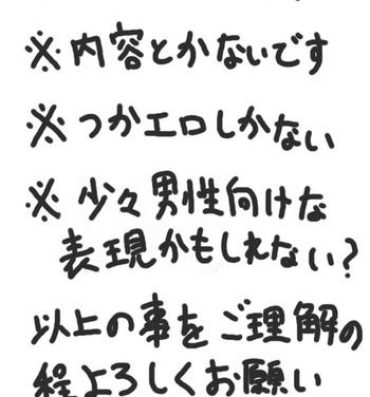 ※内容とかないです
※つかエロしかない
※少々男性向けな
表現かもしれない?
以上の事をご理解の
程よろしくお願い